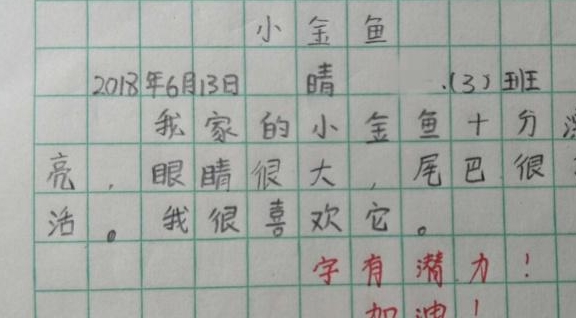 小金鱼
2018年6月13日 晴 .(3)班
我家的小金鱼十分
亮,眼睛很大,尾巴很
活。我很喜欢它。
字有潜力!
加油!